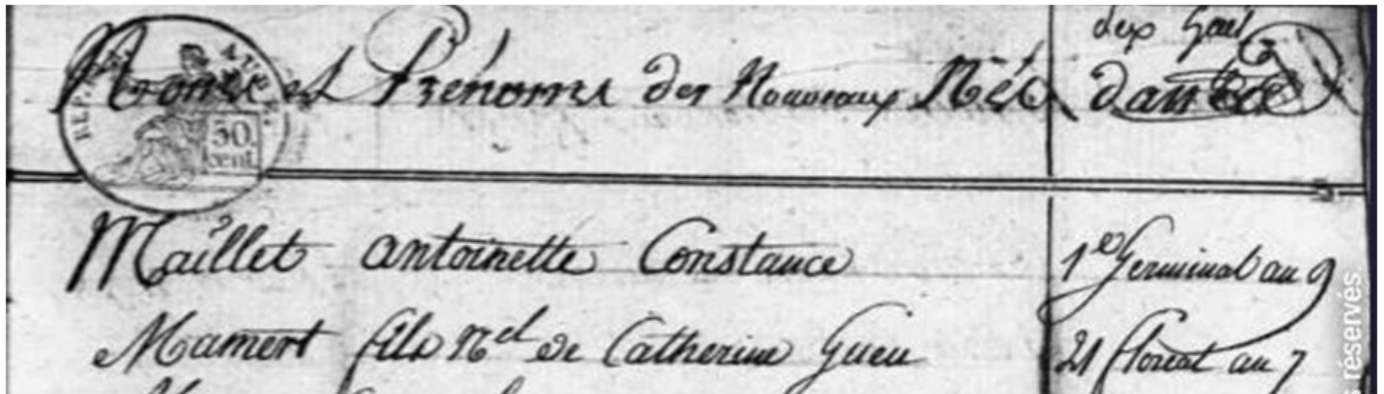 Noms et Prénoms des Nouveaux Nés
dates
REP. FRA
50
cent.
Maillet antoinette Constance
1er Germinal an 9
Mamert fils nel de Catherine Gueu
21 floreal an 7
s réservés